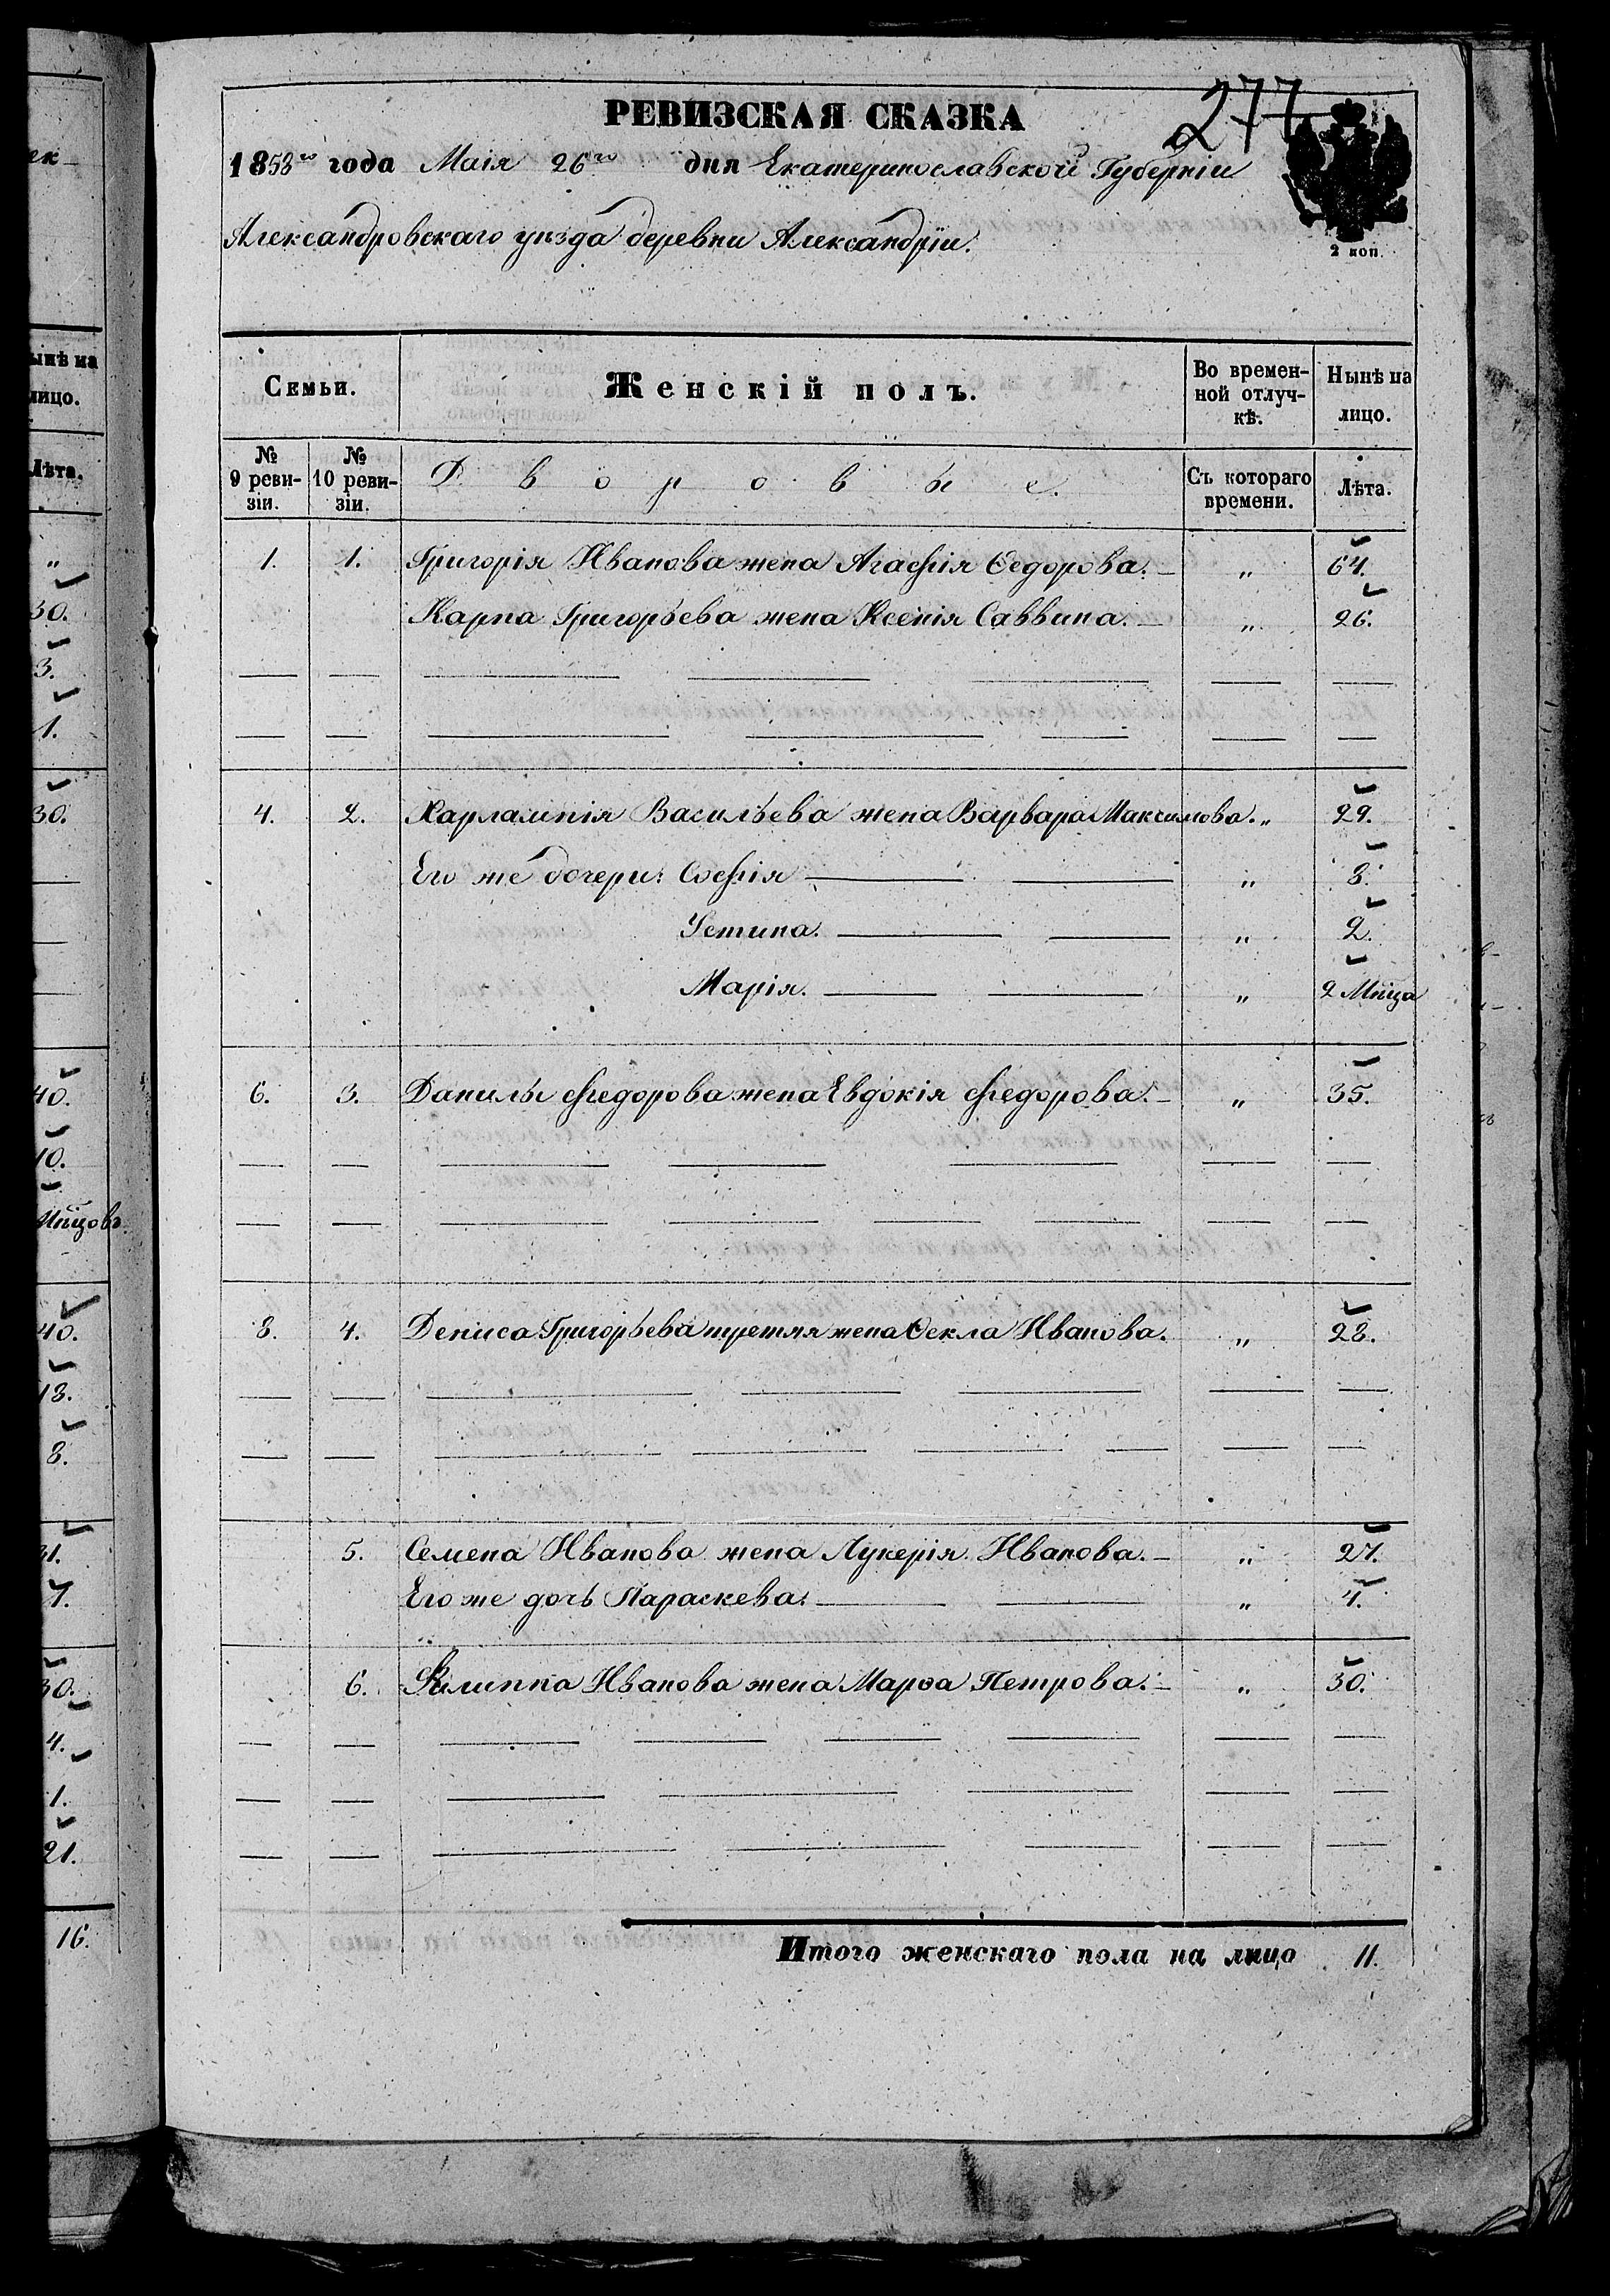 277
РЕВИЗСКАЯ СКАЗКА
1858го года Маія 26го дня Екатеринославской Губерніи
Александровскаго уѣзда деревни Александріи.
2 коп.
Семьи. Женскій полъ. Во временной отлучкѣ. Нынѣ на лицо.
№ 9 ревизіи. № 10 ревизіи. Дворовые. Съ котораго времени. Лѣта.
1. 1. Григорія Иванова жена Агафія Ѳедорова. „ 64.
Карпа Григорьева жена Ксенія Саввина. „ 26.
4. 2. Харлампія Васильева жена Варвара Максимова. „ 29.
Его же дочери: Софія „ 8.
Устина. „ 2.
Марія. „ 2 Мѣца
6. 3. Данилы Федорова жена Евдокія Федорова. „ 35.
8. 4. Дениса Григорьева третья жена Ѳекла Иванова. „ 28.
5. Семена Иванова жена Лукерія Иванова. „ 27.
Его же дочь Параскева. „ 4.
6. Филиппа Иванова жена Марѳа Петрова. „ 30.
Итого женскаго пола на лицо 11.
ынѣ на
лицо.
Лѣта.
„
30.
3.
1.
30.
40.
10.
Мѣцовъ.
40.
18.
8.
31.
7.
30.
4.
1.
21.
16.